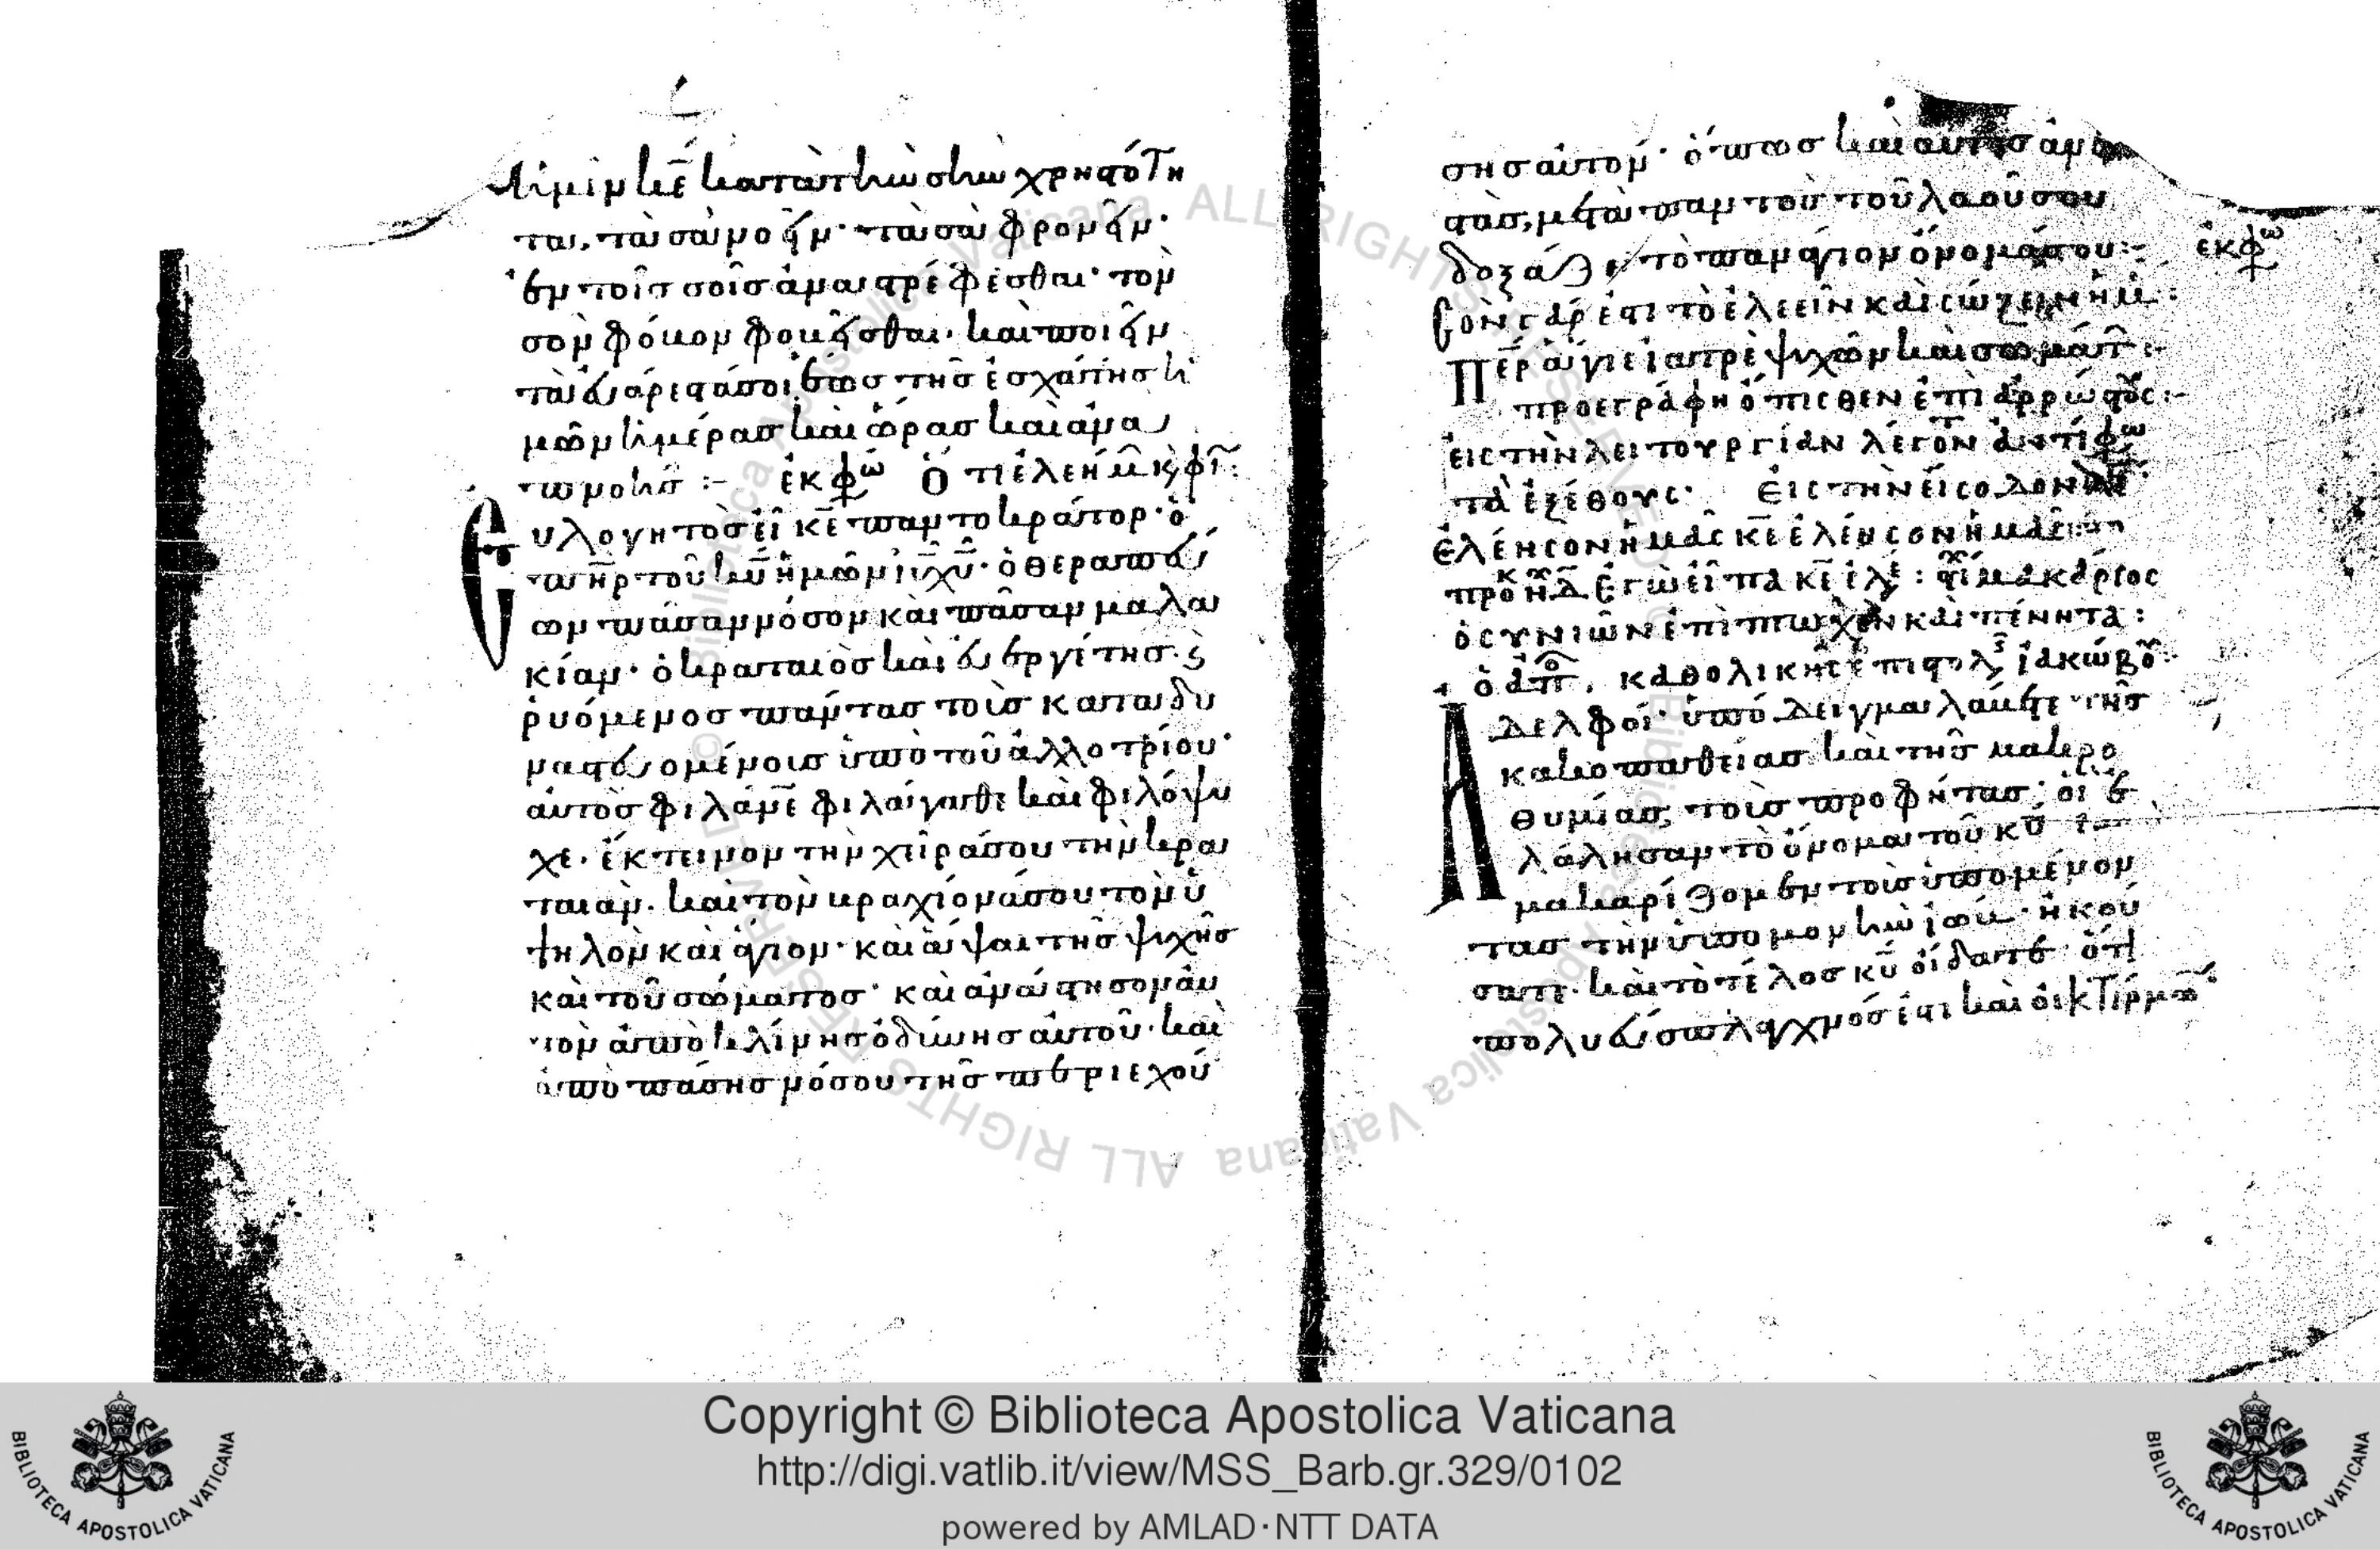 ἡμῖν κε κατὰ τὴν σὴν χρηστότη
τα, τὰ σὰ νοεῖν· τὰ σὰ φρονεῖν·
ἐν τοῖς σοῖς ἀναστρέφεσθαι· τὸν
σὸν φόβον φοβεῖσθαι· καὶ ποιεῖν
τὰ εὐάρεστά σοι ἕως τῆς ἐσχάτης ἡ
μῶν ἡμέρας καὶ ὥρας καὶ ἀνα
πνοῆς :- ἐκφω Ὁ τι ἐλεήμ κ φι :
Εὐλογητὸς εἶ κε παντοκράτορ· ὁ
πηρ τοῦ κυ ἡμῶν ιυ χυ· ὁ θεραπεύ
ων πᾶσαν νόσον καὶ πᾶσαν μαλα
κίαν· ὁ κραταιὸς καὶ εὐεργέτης· ὁ
ῥυόμενος πάντας τοὺς καταδυ
ναστευομένους ὑπὸ τοῦ ἀλλοτρίου·
αὐτὸς φιλάνε φιλάγαθε καὶ φιλόψυ
χε· ἔκτεινον τὴν χεῖρά σου τὴν κρα
ταιάν· καὶ τὸν βραχίονά σου τὸν ὑ
ψηλὸν καὶ ἅγιον· καὶ ἅψαι τῆς ψυχῆς
καὶ τοῦ σώματος· καὶ ἀνάστησον αὐ
τὸν ἀπὸ κλίνης ὀδύνης αὐτοῦ· καὶ
ἀπὸ πάσης νόσου τῆς περιεχού
σης αὐτόν· ὅπως καὶ αὐτὸς ἀνα
στὰς, μετὰ παντὸς τοῦ λαοῦ σου
δοξάζει τὸ πανάγιον ὄνομά σου :- ἐκφω
Σὸν γάρ ἐστι τὸ ἐλεεῖν καὶ σώζειν ἡμ :
Περ ἅγιε ἰατρὲ ψυχῶν καὶ σωμάτ :-
προεγράφη ὄπισθεν ἐπὶ ἀρρώστους :-
εἰς τὴν λειτουργίαν λέγον ἀντίφω
τὰ ἐξ ἔθους· Εἰς τὴν εἴσοδον
ἐλέησον ἡμᾶς κε ἐλέησον ἡμᾶς
προκ ηχ δ Ἐγὼ εἶπα κε ἐλέ : στι μακάριος
ὁ συνιῶν ἐπὶ πτωχὸν καὶ πένητα :
ὁ απο, καθολικῆς ἐπιστολ ἰακώβου :-
Ἀδελφοί· ὑπόδειγμα λάβετε τῆς
κακοπαθείας καὶ τῆς μακρο
θυμίας, τοὺς προφήτας· οἳ ἐ
λάλησαν τὸ ὄνομα τοῦ κυ
μακαρίζομεν τοὺς ὑπομένον
τας τὴν ὑπομονὴν ἰώβ· ἠκού
σατε· καὶ τὸ τέλος κυ οἴδατε· ὅτι
πολυεύσπλαγχνός ἐστι καὶ οἰκτίρμων·
Copyright © Biblioteca Apostolica Vaticana
http://digi.vatlib.it/view/MSS_Barb.gr.329/0102
powered by AMLAD·NTT DATA
BIBLIOTECA APOSTOLICA VATICANA
BIBLIOTECA APOSTOLICA VATICANA